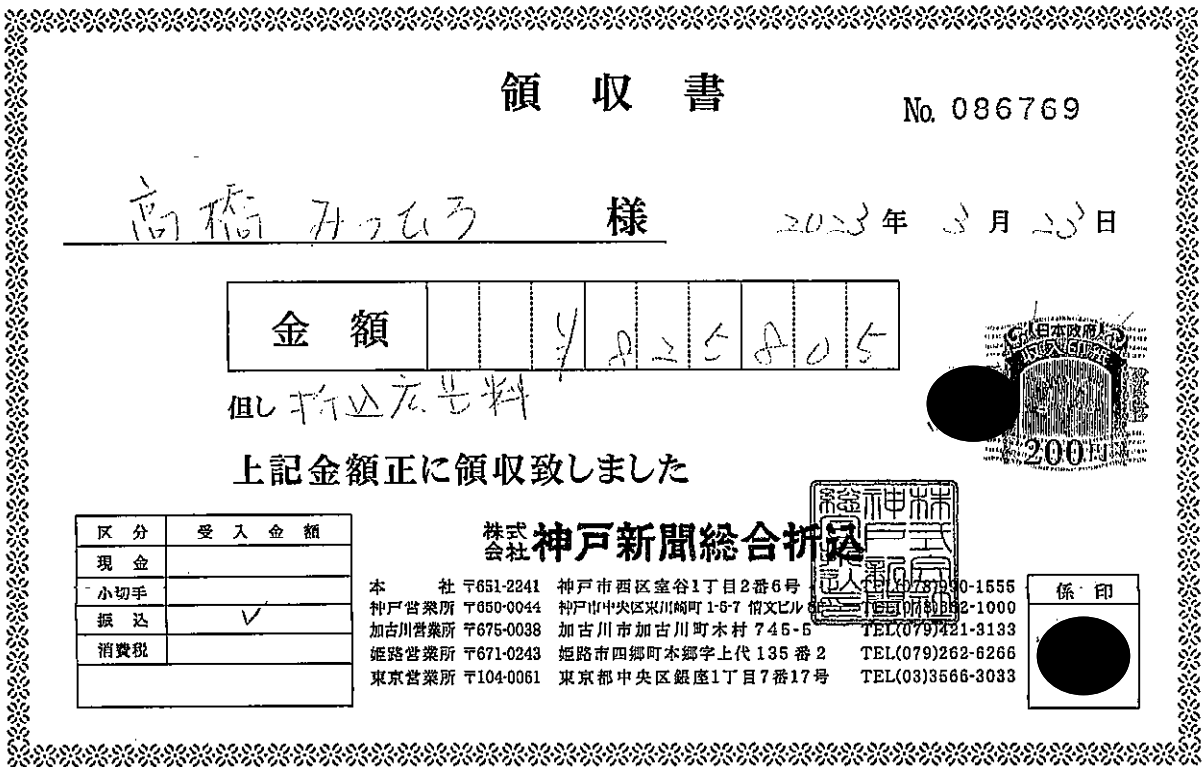 領収書
No. 086769
高橋 みつひろ 様
2023年 3月 23日
金額 ¥825805
但し 折込広告料
日本政府
200円
上記金額正に領収致しました
区分 受入金額
現金
小切手
振込 ✓
消費税
株式会社 神戸新聞総合折込
本社 〒651-2241 神戸市西区室谷1丁目2番6号
神戸営業所 〒650-0044 神戸市中央区東川崎町1-5-7
加古川営業所 〒675-0038 加古川市加古川町木村745-5 TEL(079)421-3133
姫路営業所 〒671-0243 姫路市四郷町本郷字上代135番2 TEL(079)262-6266
東京営業所 〒104-0061 東京都中央区銀座1丁目7番17号 TEL(03)3566-3033
係印